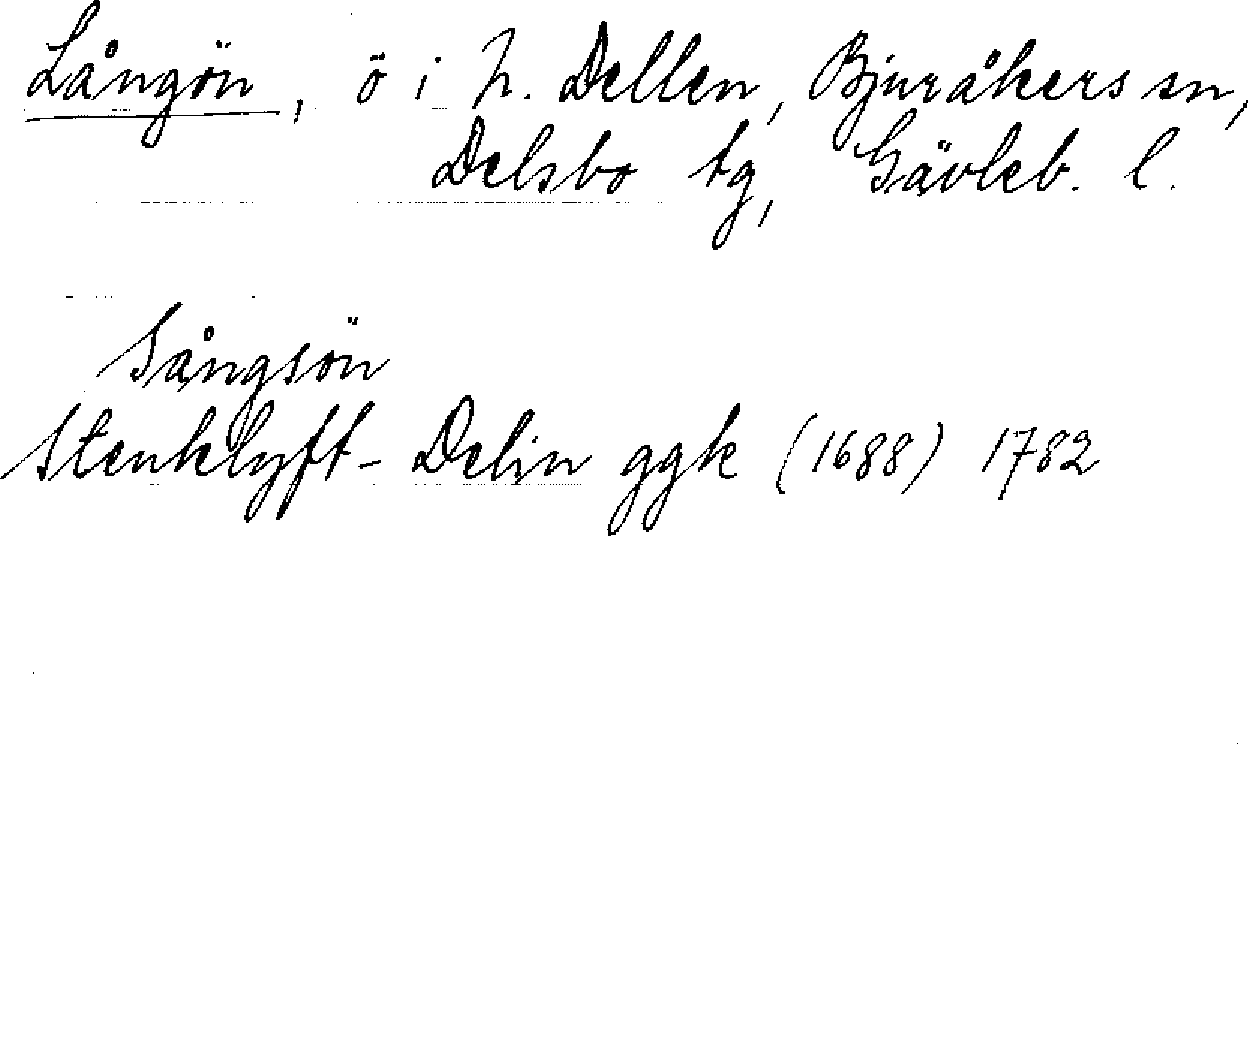 Långön, ö i N. Dellen, Bjuråkers sn,
Delsbo tg, Gävleb. l.
Sångsön
Stenklyft- Delin ggk (1688) 1782